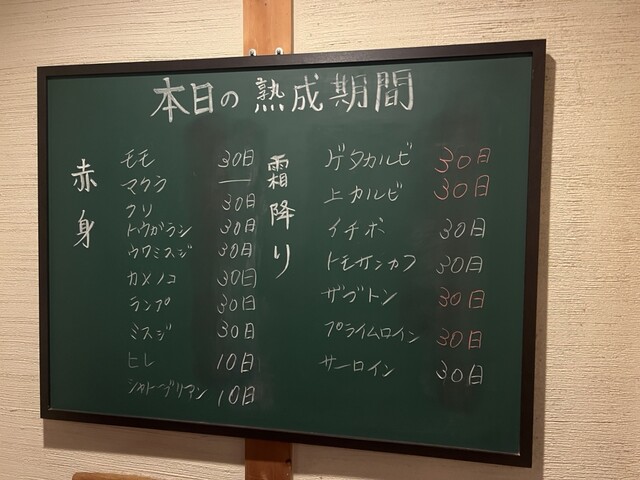 本日の熟成期間
赤身
モモ 30日
マクラ —
クリ 30日
トウガラシ 30日
ウワミスジ 30日
カメノコ 30日
ランプ 30日
ミスジ 30日
ヒレ 10日
シャトーブリアン 10日
霜降り
ゲタカルビ 30日
上カルビ 30日
イチボ 30日
トモサンカク 30日
ザブトン 30日
プライムロイン 30日
サーロイン 30日